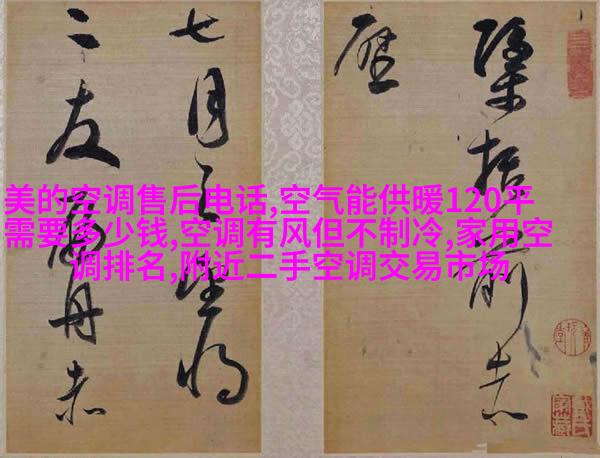 美的空调售后电话,空气能供暖120平
需要多少钱,空调有风但不制冷,家用空
调排名,附近二手空调交易市场
括前赤
壁
七月之望
二友扁舟赤